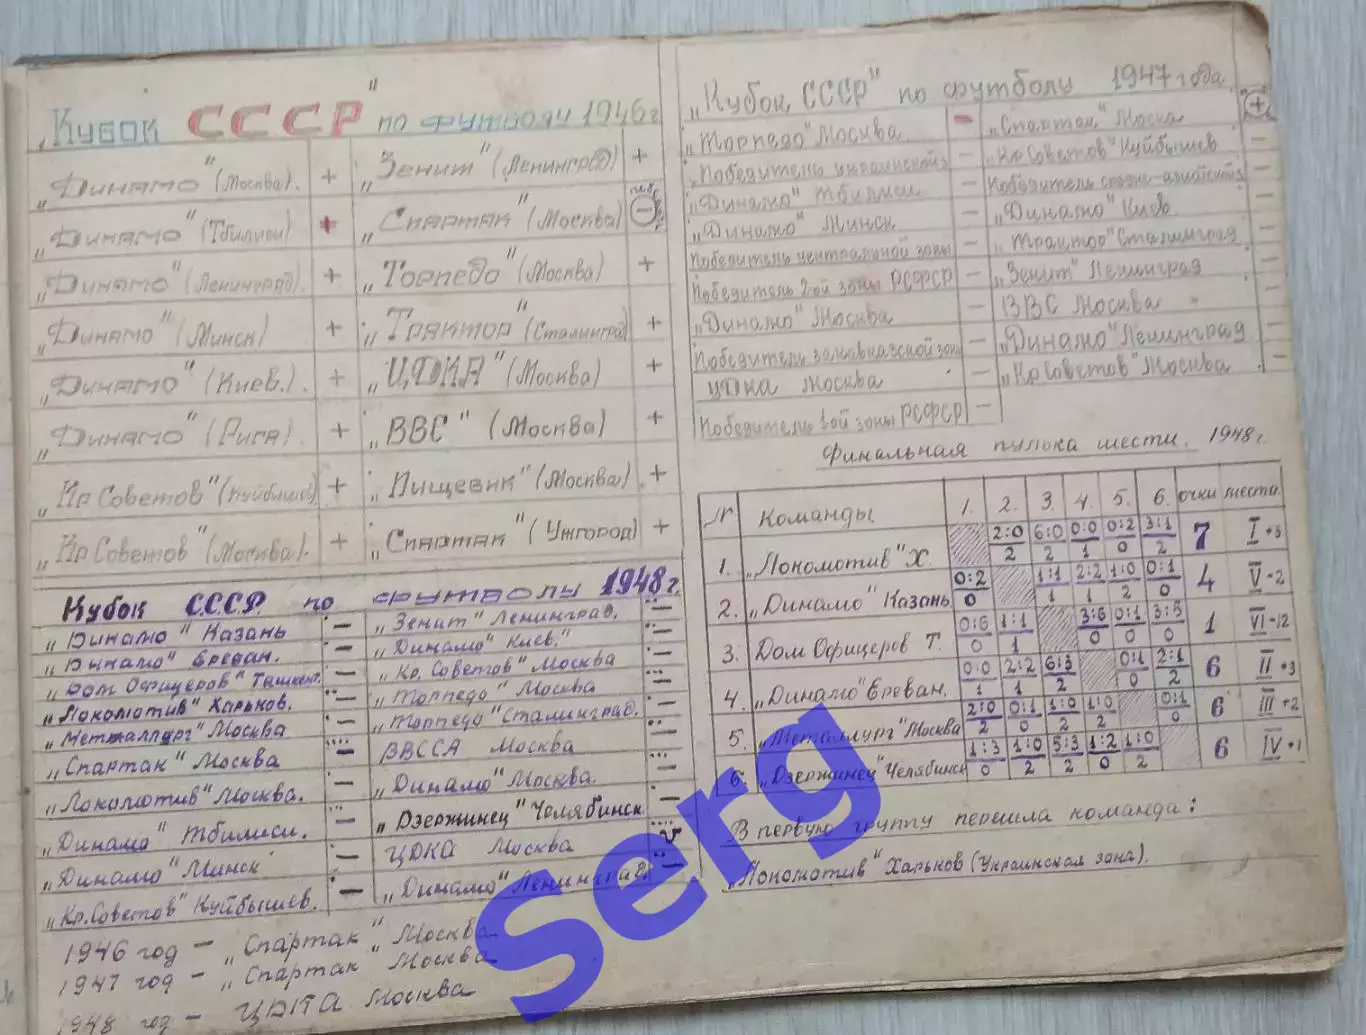 „Кубок СССР" по футболу 1946 г
„Динамо" (Москва). + „Зенит" (Ленинград) +
„Динамо" (Тбилиси) + „Спартак" (Москва) −
„Динамо" (Ленинград). + „Торпедо" (Москва) +
„Динамо" (Минск) + „Трактор" (Сталинград) +
„Динамо" (Киев.) + „ЦДКА" (Москва) +
„Динамо" (Рига). + „ВВС" (Москва) +
„Кр Советов" (Куйбышев) + „Пищевик" (Москва) +
„Кр Советов" (Москва). + „Спартак" (Ужгород) +
Кубок СССР по футболу 1948 г.
„Динамо" Казань – „Зенит" Ленинград. –
„Динамо" Ереван. – „Динамо" Киев." –
„Дом Офицеров" Ташкент. – „Кр. Советов" Москва –
„Локомотив" Харьков. – „Торпедо" Москва –
„Металлург" Москва – „Торпедо" Сталинград. –
„Спартак" Москва – ВВССА Москва –
„Локомотив" Москва. – „Динамо" Москва. –
„Динамо" Тбилиси. – „Дзержинец" Челябинск –
„Динамо" Минск – ЦДКА Москва v
„Кр. Советов" Куйбышев. – „Динамо" Ленинград. –
1946 год – „Спартак" Москва.
1947 год – „Спартак" Москва
1948 год – ЦДКА Москва
„Кубок, СССР" по футболу 1947 года.
„Торпедо" Москва – „Спартак" Москва +
„Победитель украинской з – „Кр Советов" Куйбышев –
„Динамо" Тбилиси – Победитель средне-азиатской з –
„Динамо" Минск – „Динамо" Киев –
Победитель центральной зоны – „Трактор" Сталинград –
Победитель 2-ой зоны РСФСР – „Зенит" Ленинград –
„Динамо" Москва – ВВС Москва –
Победитель закавказской зон – „Динамо" Ленинград –
ЦДКА Москва – „Кр Советов" Москва –
Победитель 1ой зоны РСФСР –
Финальная пулька шести. 1948 г.
№ Команды. 1. 2. 3. 4. 5. 6. очки места.
1. „Локомотив" Х. 2:0 6:0 0:0 0:2 3:1 7 I +5
2 2 1 0 2
2. „Динамо" Казань 0:2 1:1 2:2 1:0 0:1 4 V -2
0 1 1 2 0
3. Дом Офицеров Т. 0:6 1:1 3:6 0:1 3:5 1 VI -12
0 1 0 0 0
4. „Динамо" Ереван. 0:0 2:2 6:3 0:1 2:1 6 II +3
1 1 2 0 2
5. „Металлург" Москва 2:0 0:1 1:0 1:0 0:1 6 III +2
2 0 2 2 0
6. „Дзержинец" Челябинск 1:3 1:0 5:3 1:2 1:0 6 IV +1
0 2 2 0 2
В первую группу перешла команда:
„Локомотив" Харьков (Украинская зона).
Serg